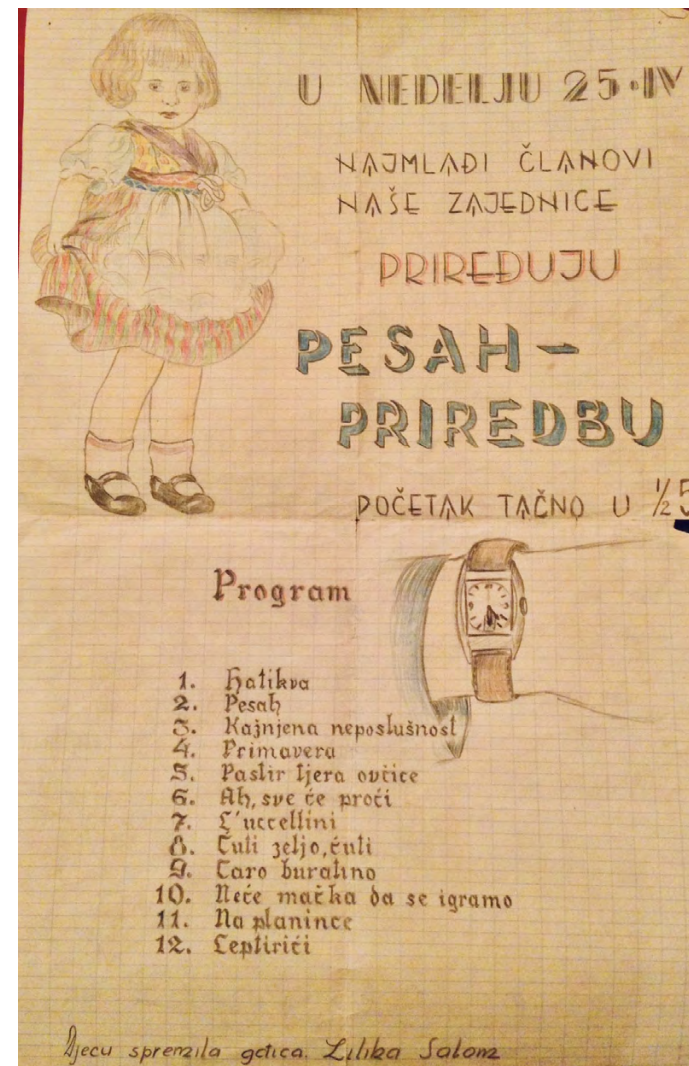 U NEDELJU 25·IV
NAJMLAĐI ČLANOVI
NAŠE ZAJEDNICE
PRIREĐUJU
PESAH-
PRIREDBU
POČETAK TAČNO U ½5
Program
1. Hatikva
2. Pesah
3. Kažnjena neposlušnost
4. Primavera
5. Pastir tjera ovčice
6. Ah, sve će proći
7. L'uccellini
8. Ćuti zeljo, ćuti
9. Caro buratino
10. Neće mačka da se igramo
11. Na planince
12. Leptirići
Djecu spremila gđica. Lilika Salom